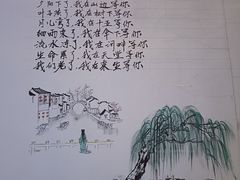 夕阳下了,我在山边等你
叶子黄了,我在树下等你
月儿弯了,我在十五等你
细雨来了,我在伞下等你
流水冻了,我在河畔等你
生命累了,我在天堂等你
我们老了,我在来生等你